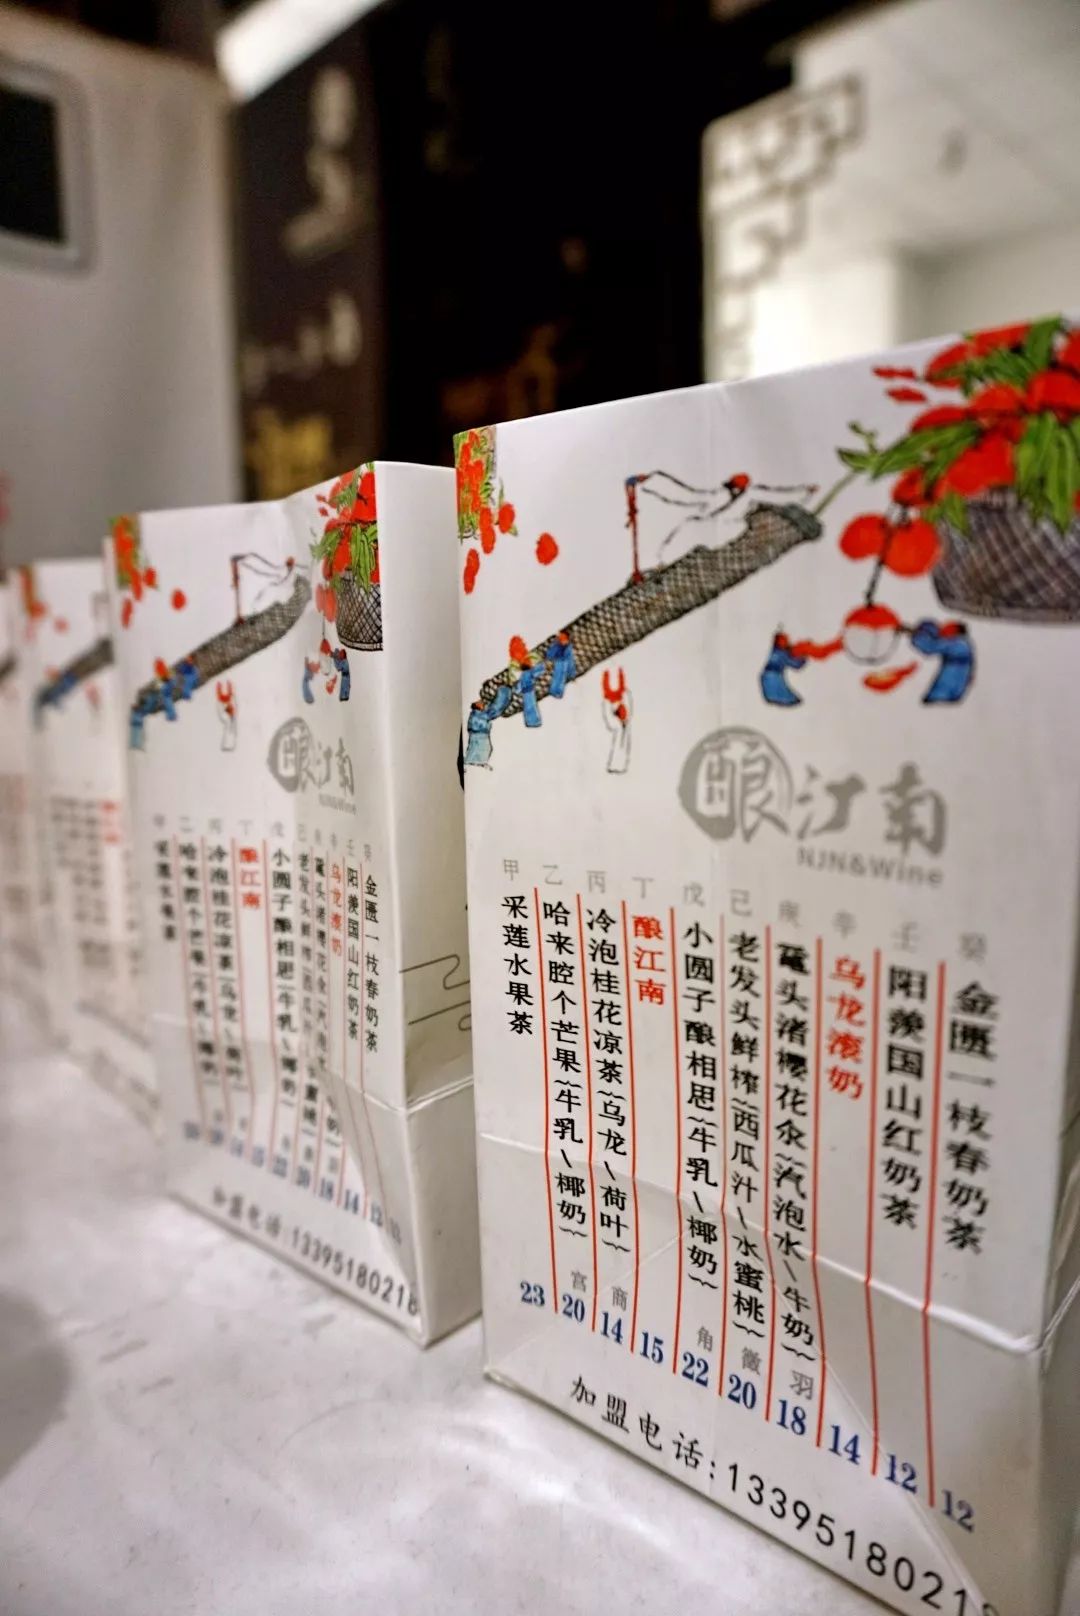 酿江南
NJN&Wine
甲 乙 丙 丁 戊 己 庚 辛 壬 癸
采莲水果茶
哈来腔个芒果~牛乳\椰奶~
冷泡桂花凉茶~乌龙\荷叶~
酿江南
小圆子酿相思~牛乳\椰奶~
老发头鲜榨~西瓜汁\水蜜桃~
鼋头渚樱花汆~汽泡水\牛奶~
乌龙滚奶
阳羡国山红奶茶
金匮一枝春奶茶
宫 商 角 徵 羽
23 20 14 15 22 20 18 14 12 12
加盟电话:1339518021
酿江南
NJN&Wine
采莲水果茶
哈来腔个芒果~牛乳\椰奶~
冷泡桂花凉茶~乌龙\荷叶~
酿江南
小圆子酿相思~牛乳\椰奶~
乌龙滚奶
阳羡国山红奶茶
金匮一枝春奶茶
加盟电话:13395180218